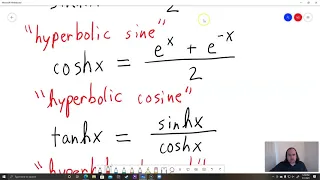 "hyperbolic sine"
coshx = e^x + e^-x / 2
"hyperbolic cosine"
tanhx = sinhx / coshx